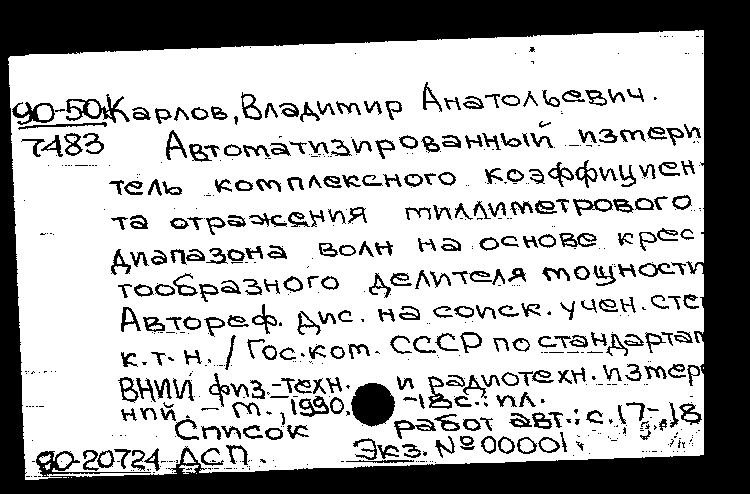 90-50 Карлов, Владимир Анатольевич.
7483 Автоматизированный измери
тель комплексного коэффициен-
та отражения миллиметрового
диапазона волн на основе крес-
тообразного делителя мощности
Автореф. дис. на соиск. учен. степ
к.т.н. / Гос. ком. СССР по стандартам
ВНИИ физ.-техн. и радиотехн. измере
ний. – М., 1990. -18с.: ил.
Список работ авт.: с.17-18
90-20724 ДСП. Экз. № 00001.